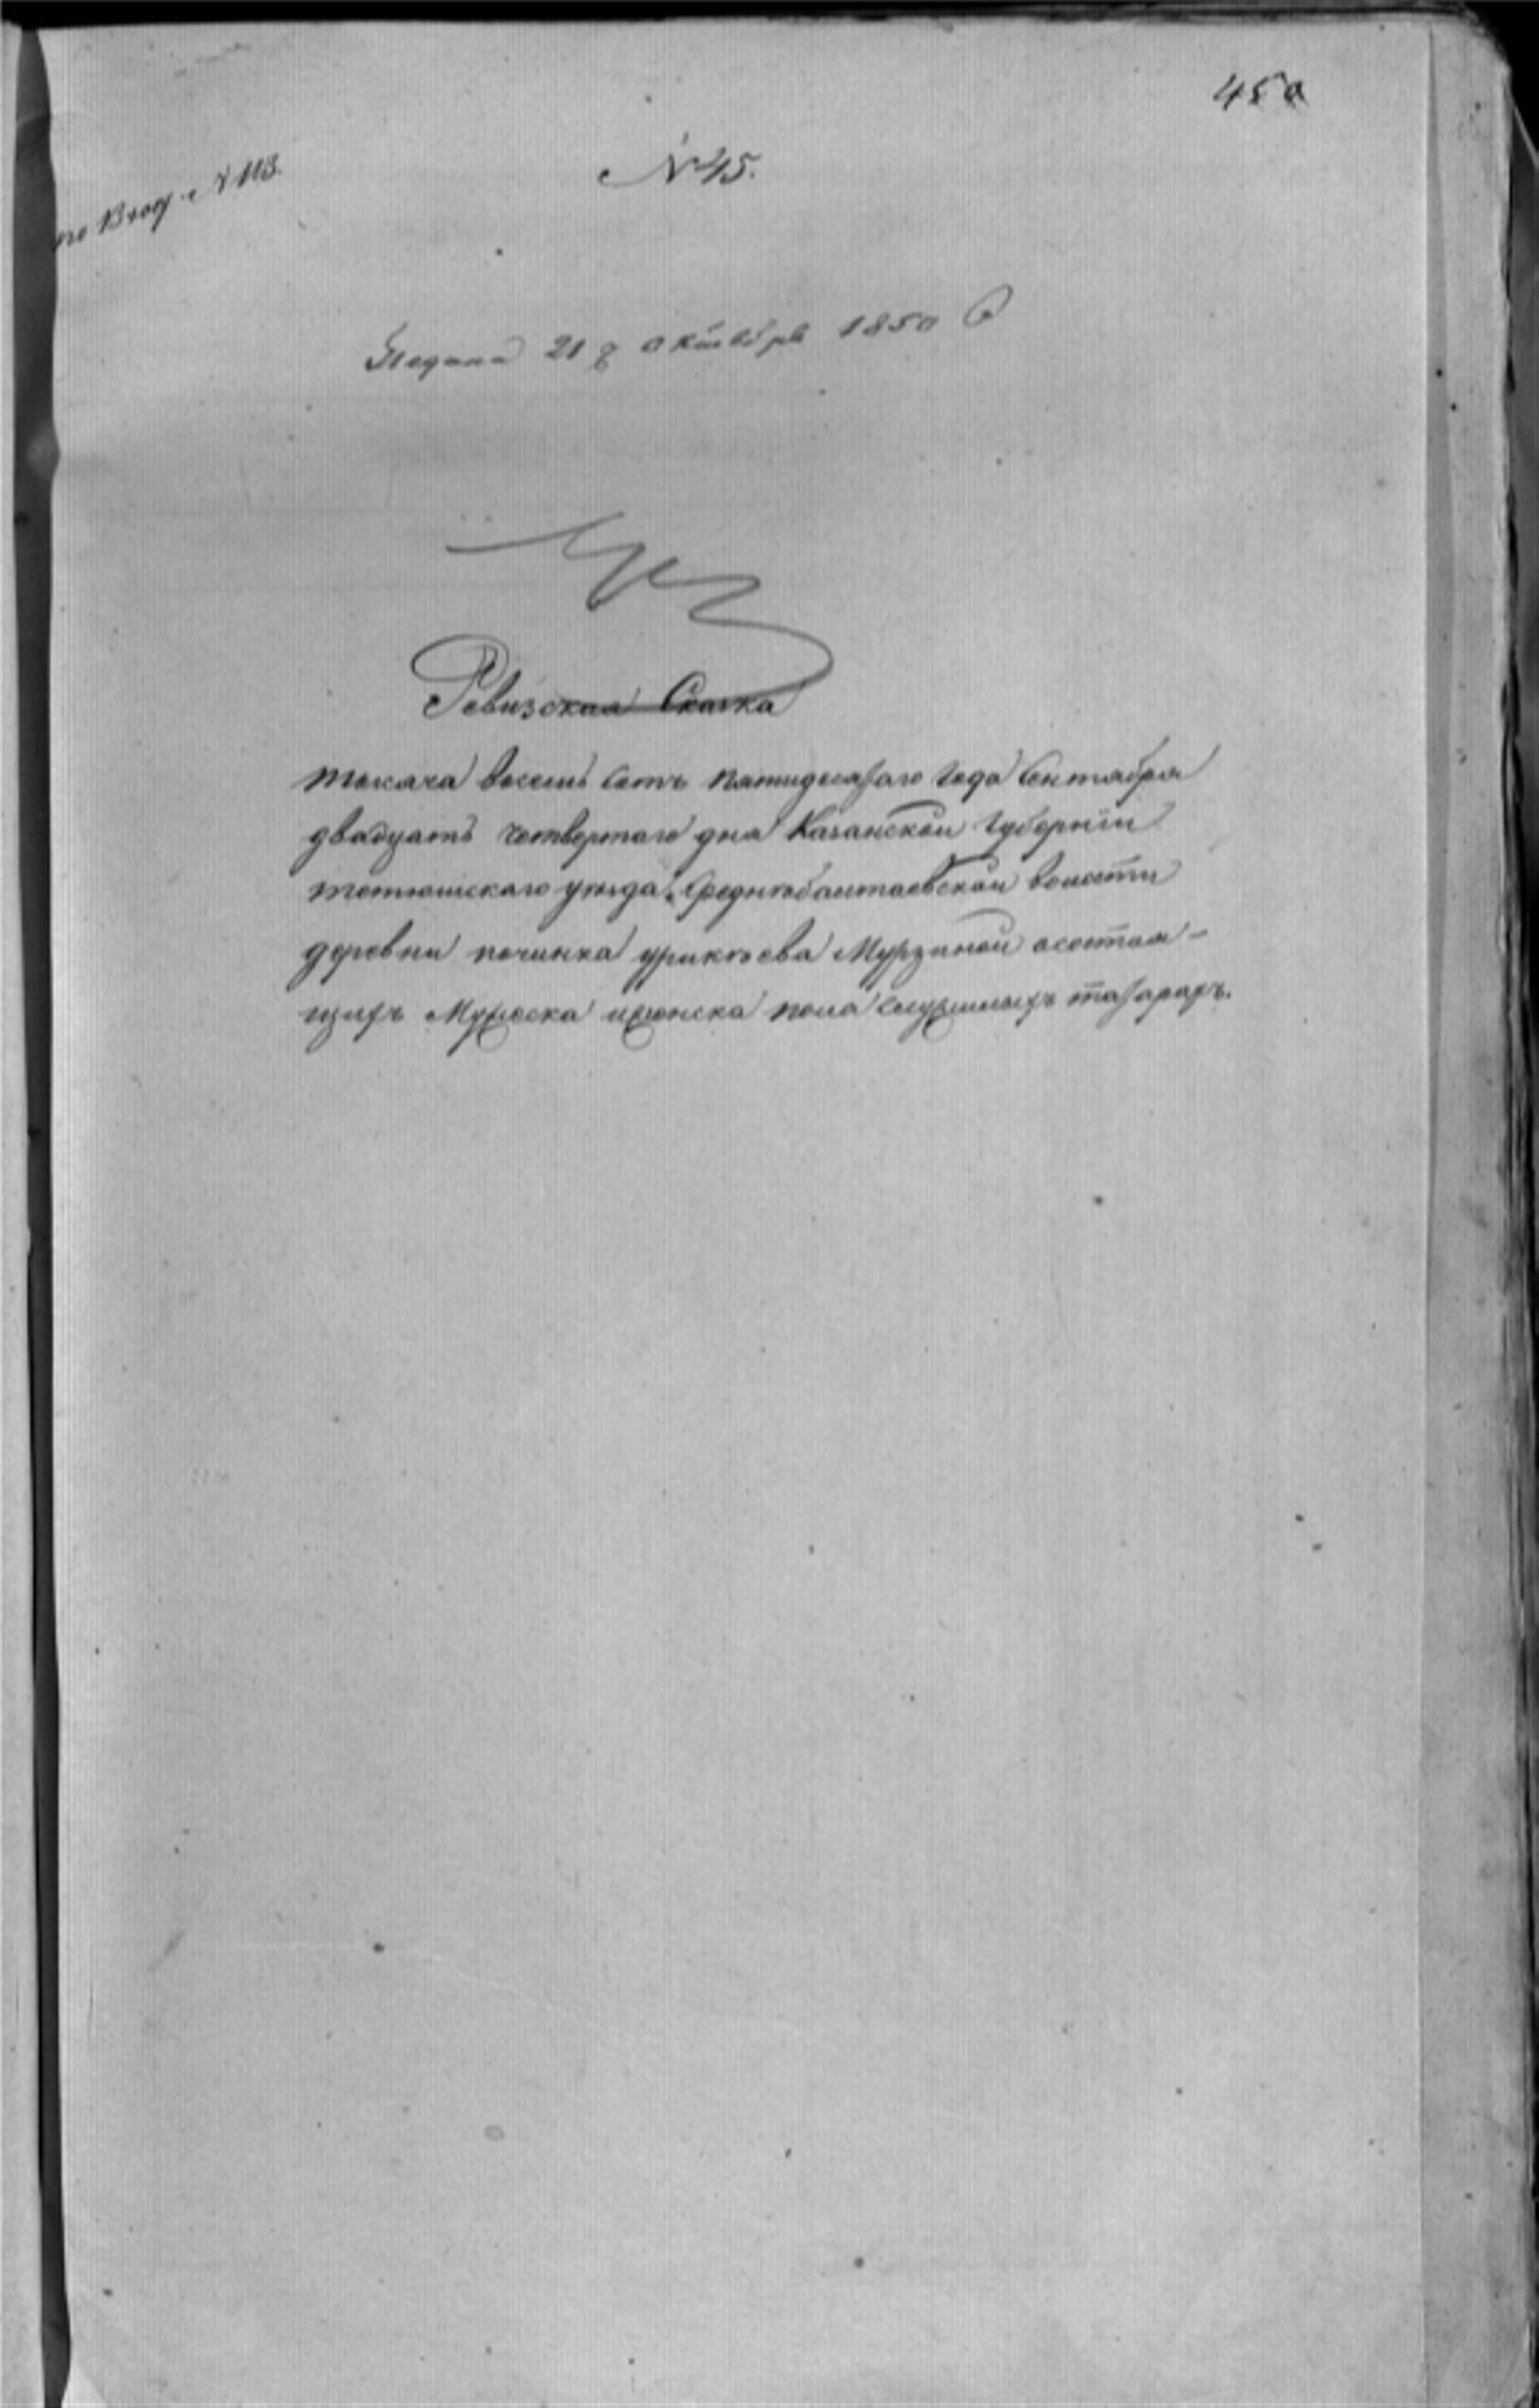 450
№ 45.
по Вход. № 113.
Подана 21 д Октября 1850 г
Ревизская Сказка
тысяча восемь сотъ пятидесятаго года Сентября
двадцать четвертаго дня Казанской Губернiи
тетюшскаго уѣзда, Среднебалтаевской волости
деревни починка Мурзиной осостоя-
щихъ Мужеска ижонска пола служилыхъ татарахъ.